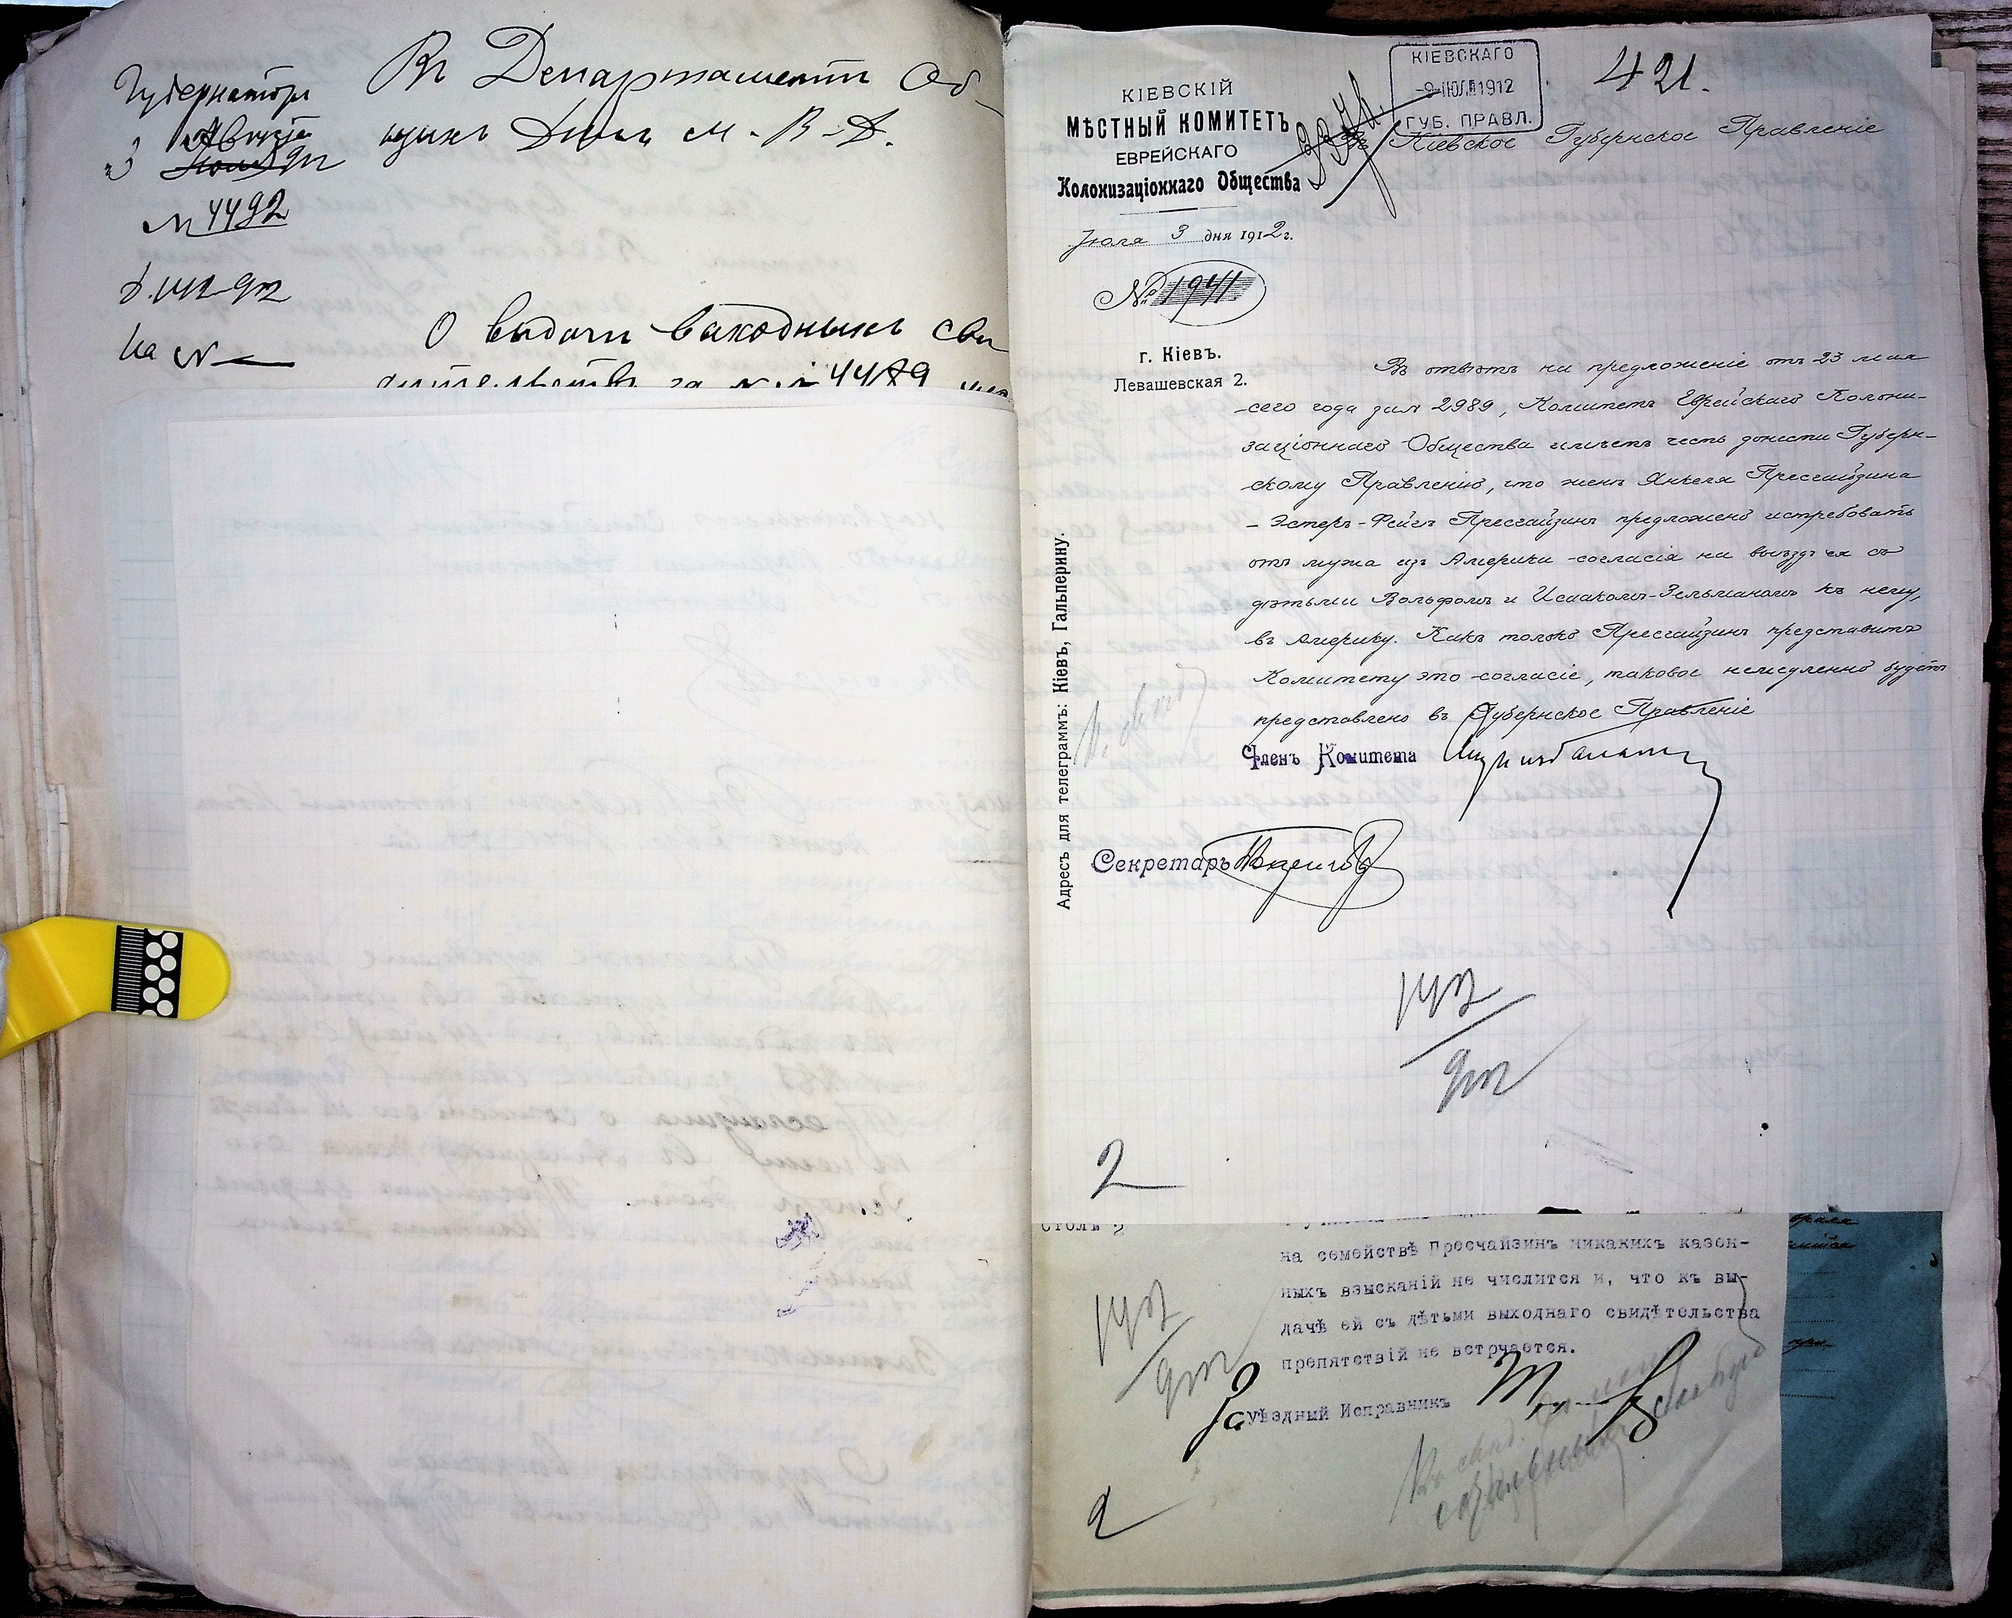 Губернаторъ
Въ Департаментъ Об-
щихъ Дѣлъ М-В-Д.
3 Августа
Іюля 912
№ 4492
д. 142-912
На №
О выдачи выходныхъ сви
дѣтельствъ за №№ 4489
КІЕВСКАГО
9 ІЮЛЯ 1912
ГУБ. ПРАВЛ.
421.
КІЕВСКІЙ
МѢСТНЫЙ КОМИТЕТЪ
ЕВРЕЙСКАГО
Колонизаціоннаго Общества
Въ Кіевское Губернское Правленіе
Іюля 3 дня 1912 г.
№ 1941.
г. Кіевъ.
Левашевская 2.
Адресъ для телеграммъ: Кіевъ, Гальперину.
Въ отвѣтъ на предложеніе отъ 23 мая
сего года за № 2989, Комитетъ Еврейскаго Колони-
заціоннаго Общества имѣетъ честь донести Губерн-
скому Правленію, что женѣ Янкеля Пресчайзина
- Эстеръ-Фейгѣ Пресчайзинъ предложено истребовать
отъ мужа изъ Америки согласія на выѣздъ ея съ
дѣтьми Вольфомъ и Исаакомъ-Зельманомъ къ нему,
въ Америку. Какъ только Пресчайзинъ представитъ
Комитету это согласіе, таковое немедленно будетъ
представлено въ Губернское Правленіе
Членъ Комитета
Секретарь
142
912
2
столъ 2
на семействѣ Пресчайзинъ никакихъ казен-
ныхъ взысканій не числится и, что къ вы-
дачѣ ей съ дѣтьми выходнаго свидѣтельства
препятствій не встрѣчается.
142
912
За уѣздный Исправникъ
2